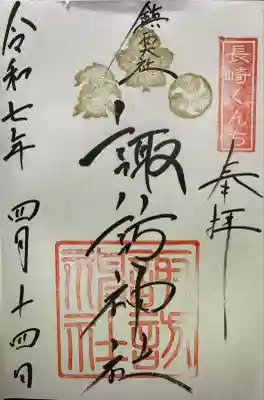 長崎くんち
奉拝
鎮西大社
諏訪神社
諏訪神社
令和七年 四月十四日